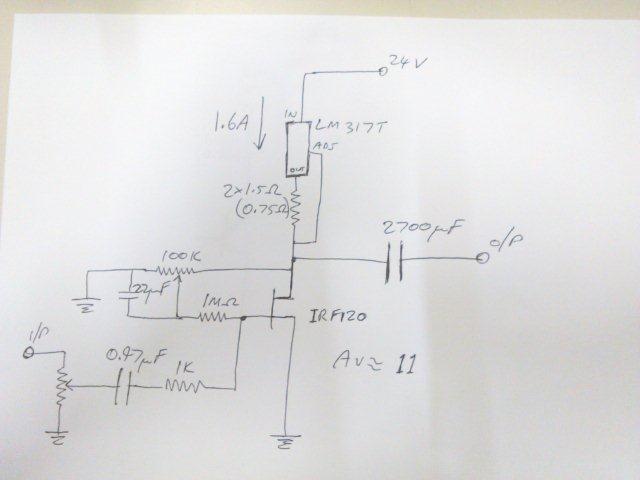 24V
IN
LM317T
1.6A
ADJ
OUT
2x1.5Ω
(0.75Ω)
2700µF
O/P
100K
22µF
1MΩ
IRF120
I/P
0.47µF
1K
AV≈ 11